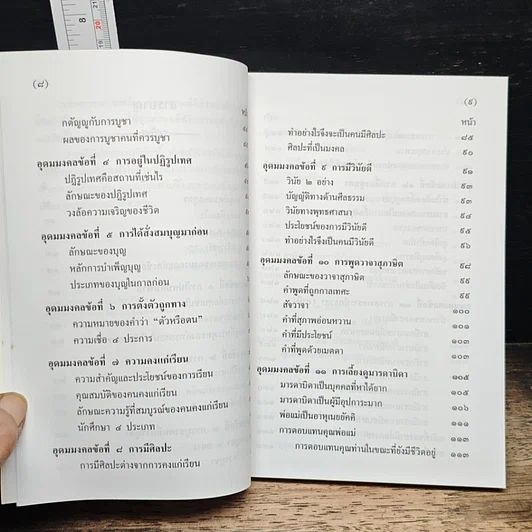 (๘)
กตัญญูกับการบูชา
ผลของการบูชาคนที่ควรบูชา
อุดมมงคลข้อที่ ๔ การอยู่ในปฏิรูปเทศ
ปฏิรูปเทศคือสถานที่เช่นไร
ลักษณะของปฏิรูปเทศ
วงล้อความเจริญของชีวิต
อุดมมงคลข้อที่ ๕ การได้สั่งสมบุญมาก่อน
ลักษณะของบุญ
หลักการบำเพ็ญบุญ
ประเภทของบุญในกาลก่อน
อุดมมงคลข้อที่ ๖ การตั้งตัวถูกทาง
ความหมายของคำว่า “ตัวหรือตน”
ความเชื่อ ๔ ประการ
อุดมมงคลข้อที่ ๗ ความคงแก่เรียน
ความสำคัญและประโยชน์ของการเรียน
คุณสมบัติของคนคงแก่เรียน
ลักษณะความรู้ที่สมบูรณ์ของคนคงแก่เรียน
นักศึกษา ๔ ประเภท
อุดมมงคลข้อที่ ๘ การมีศิลปะ
การมีศิลปะต่างจากการคงแก่เรียน
(๙)
หน้า
ทำอย่างไรจึงจะเป็นคนมีศิลปะ ๘๕
ศิลปะที่เป็นมงคล ๙๐
อุดมมงคลข้อที่ ๙ การมีวินัยดี ๙๑
วินัย ๒ อย่าง ๙๓
บัญญัติทางด้านศีลธรรม ๙๔
วินัยทางพุทธศาสนา ๙๔
ประโยชน์ของการมีวินัยดี ๙๕
ทำอย่างไรจึงเป็นคนมีวินัยดี ๙๖
อุดมมงคลข้อที่ ๑๐ การพูดวาจาสุภาษิต ๙๘
ลักษณะของวาจาสุภาษิต ๙๙
คำพูดที่ถูกกาลเทศะ ๙๙
สัจวาจา ๑๐๐
คำที่สุภาพอ่อนหวาน ๑๐๑
คำที่มีประโยชน์ ๑๐๓
คำที่พูดด้วยเมตตา ๑๐๓
อุดมมงคลข้อที่ ๑๑ การเลี้ยงดูมารดาบิดา ๑๐๕
มารดาบิดาเป็นบุคคลที่หาได้ยาก ๑๐๕
มารดาบิดาเป็นผู้มีอุปการะมาก ๑๐๖
พ่อแม่เป็นอาหุเนยยัคคิ ๑๑๑
การตอบแทนคุณพ่อแม่ ๑๑๓
การตอบแทนคุณท่านในขณะที่ยังมีชีวิตอยู่ ๑๑๓